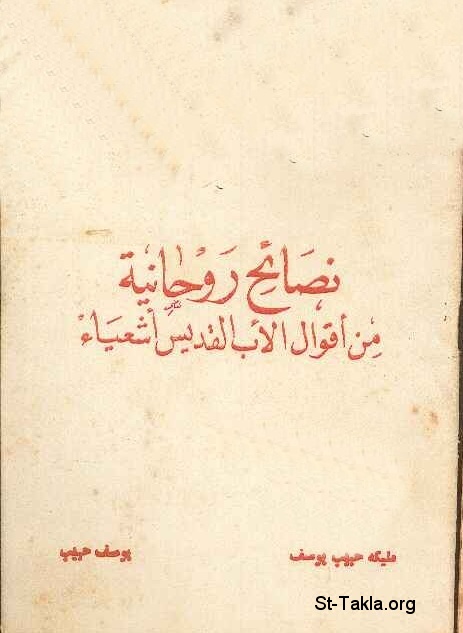 نصائح روحانية
من أقوال الأب القديس أشعياء
مليكه حبيب يوسف
يوسف حبيب
St-Takla.org